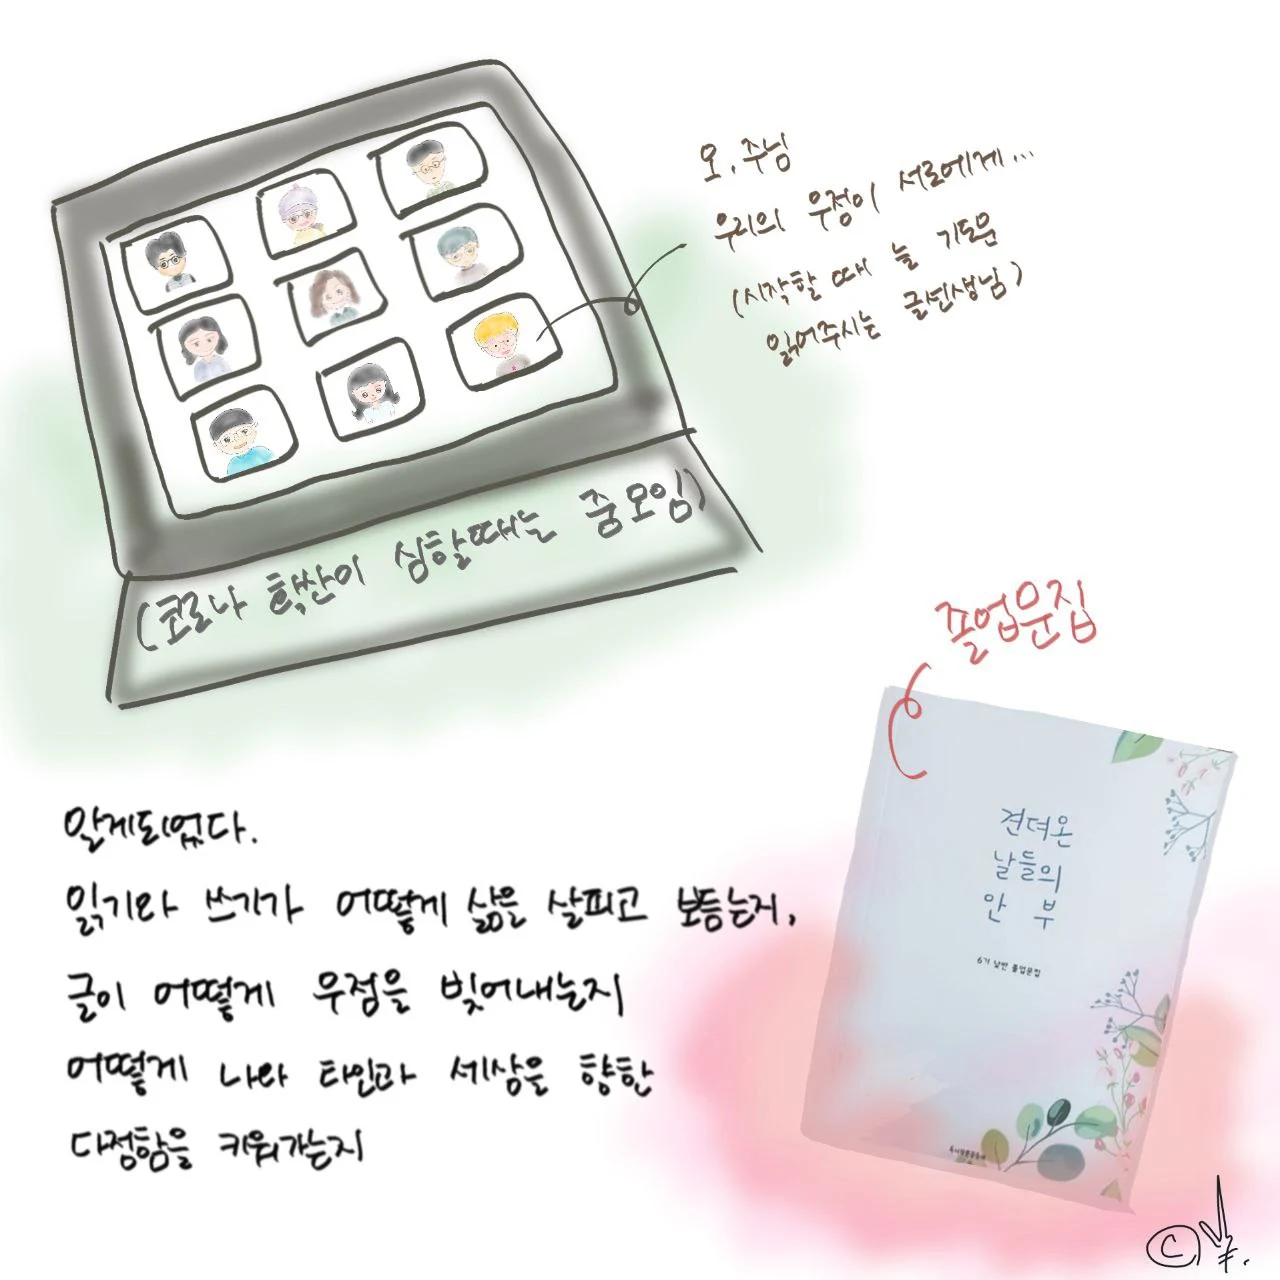 오, 주님
우리의 우정이 서로에게...
(시작할 때 늘 기도문
읽어주시는 글년생님)
(코로나 확산이 심할때는 줌모임)
졸업문집
견뎌온
날들의
안부
6기 낮반 졸업문집
알게되었다.
읽기와 쓰기가 어떻게 삶을 살피고 보듬는지,
글이 어떻게 우정을 빚어내는지
어떻게 나와 타인과 세상을 향한
다정함을 키워가는지
©